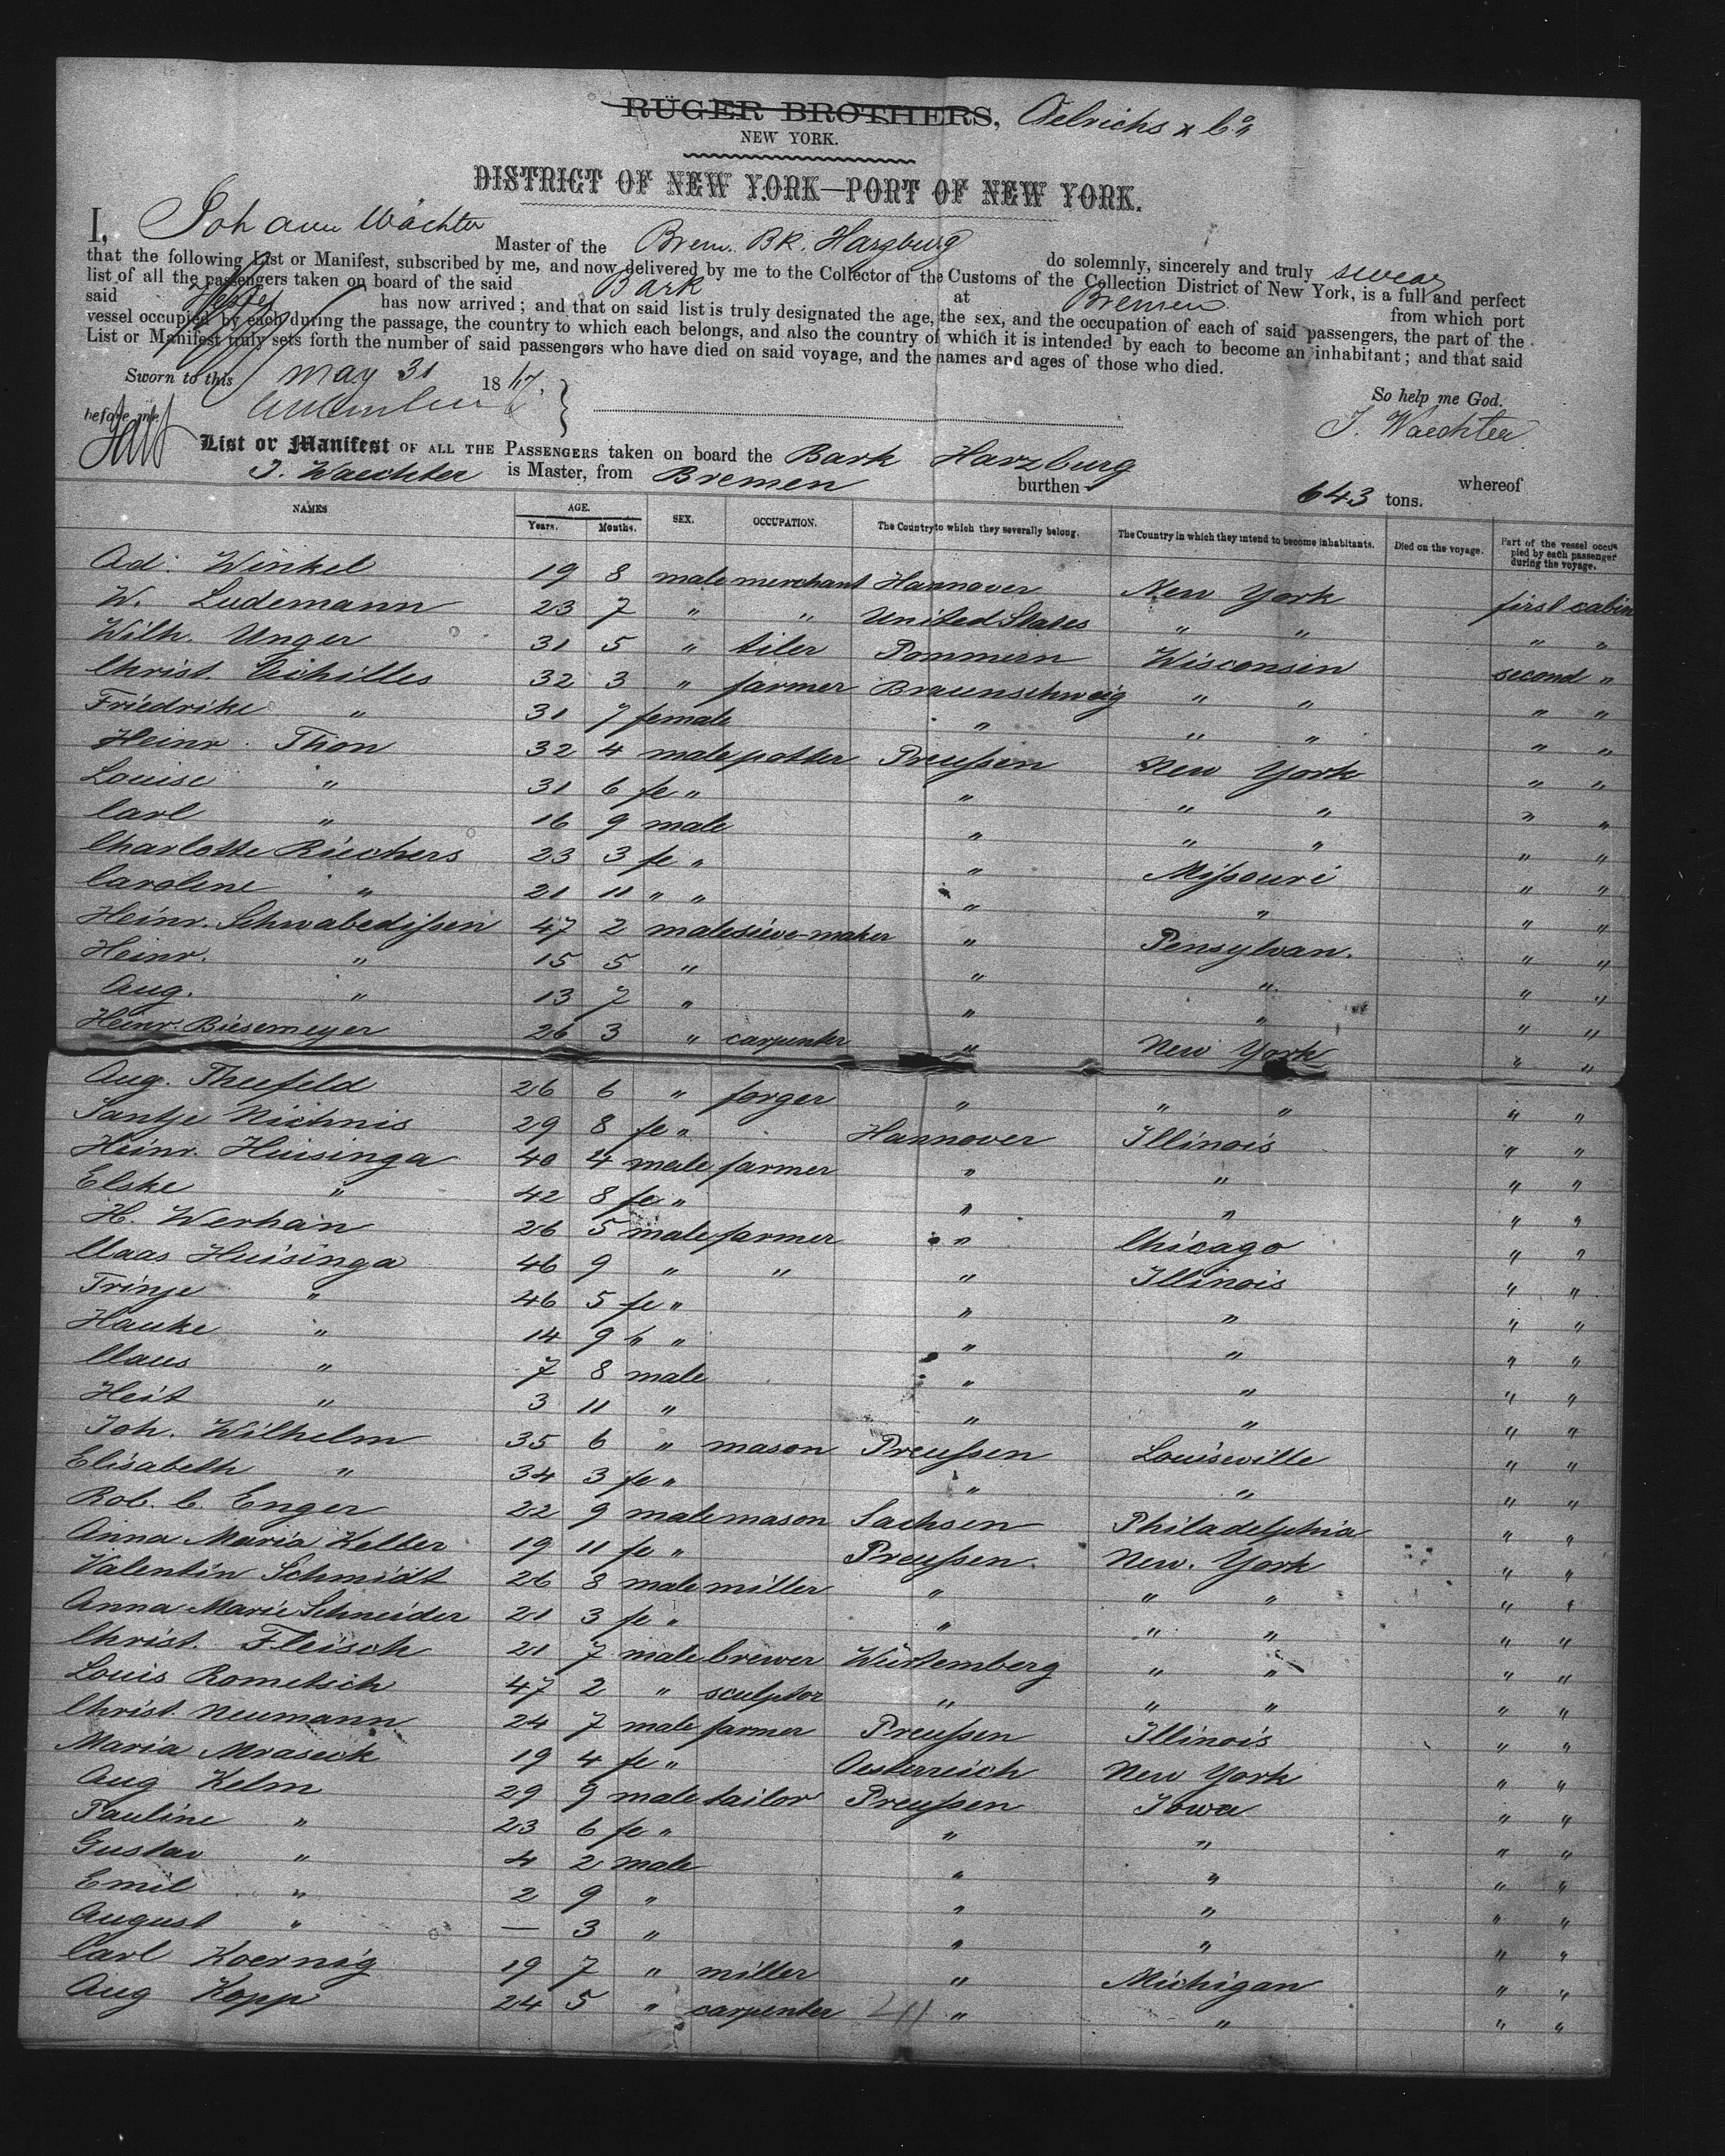 RÜGER BROTHERS, Oelrichs & Co
NEW YORK.
DISTRICT OF NEW YORK—PORT OF NEW YORK.
I, Johann Wächter Master of the Brem. Bk. Harzburg do solemnly, sincerely and truly swear
that the following List or Manifest, subscribed by me, and now delivered by me to the Collector of the Customs of the Collection District of New York, is a full and perfect
list of all the passengers taken on board of the said Bark at Bremen from which port
said Vessel has now arrived; and that on said list is truly designated the age, the sex, and the occupation of each of said passengers, the part of the
vessel occupied by each during the passage, the country to which each belongs, and also the country of which it is intended by each to become an inhabitant; and that said
List or Manifest truly sets forth the number of said passengers who have died on said voyage, and the names and ages of those who died.
Sworn to this May 31 1867. So help me God.
before me J. Waechter
List or Manifest OF ALL THE PASSENGERS taken on board the Bark Harzburg whereof
J. Waechter is Master, from Bremen burthen 643 tons.
NAMES AGE. Years. Months. SEX. OCCUPATION. The Country to which they severally belong. The Country in which they intend to become inhabitants. Died on the voyage. Part of the vessel occupied by each passenger during the voyage.
Ad. Winkel 19 8 male merchant Hannover New York first cabin
W. Ludemann 23 7 " " United States " " " "
Wilh. Unger 31 5 " tiler Pommern Wisconsin second "
Christ. Achilles 32 3 " farmer Braunschweig " " " "
Friedrike " 31 7 female " " " " "
Heinr. Thon 32 4 male potter Preußen New York " "
Louise " 31 6 fe " " " " " "
Carl " 16 9 male " " " " "
Charlotte Riechers 23 3 fe " " Missouri " "
Caroline " 21 11 " " " " " "
Heinr. Schwabedißen 47 2 male sieve-maker " Pensylvan. " "
Heinr. " 15 5 " " " " "
Aug. " 13 7 " " " " "
Heinr. Biesemeyer 26 3 " carpenter " New York " "
Aug. Theefeld 26 6 " forger " " " " "
Santje Nichnis 29 8 fe " Hannover Illinois " "
Heinr. Huisinga 40 4 male farmer " " " "
Elske " 42 8 fe " " " " "
H. Werhan 26 5 male farmer " Chicago " "
Claas Huisinga 46 9 " " " Illinois " "
Trinje " 46 5 fe " " " " "
Hauke " 14 9 " " " " " "
Claus " 7 8 male " " " "
Heit " 3 11 " " " " "
Joh. Wilhelm 35 6 " mason Preußen Louisville " "
Elisabeth " 34 3 fe " " " " "
Rob. C. Enger 22 9 male mason Sachsen Philadelphia " "
Anna Maria Keller 19 11 fe " Preußen New York " "
Valentin Schmidt 26 8 male miller " " " " "
Anna Marie Schneider 21 3 fe " " " " " "
Christ. Fleisch 21 7 male brewer Würtemberg " " " "
Louis Rometsch 47 2 " sculptor " " " " "
Christ. Neumann 24 7 male farmer Preußen Illinois " "
Maria Mraseck 19 4 fe " Oesterreich New York " "
Aug Kelm 29 9 male tailor Preußen Iowa " "
Pauline " 23 6 fe " " " " "
Gustav " 4 2 male " " " "
Emil " 2 9 " " " " "
August " — 3 " " " " "
Carl Koernig 19 7 " miller " Michigan " "
Aug Kopp 24 5 " carpenter " " " "